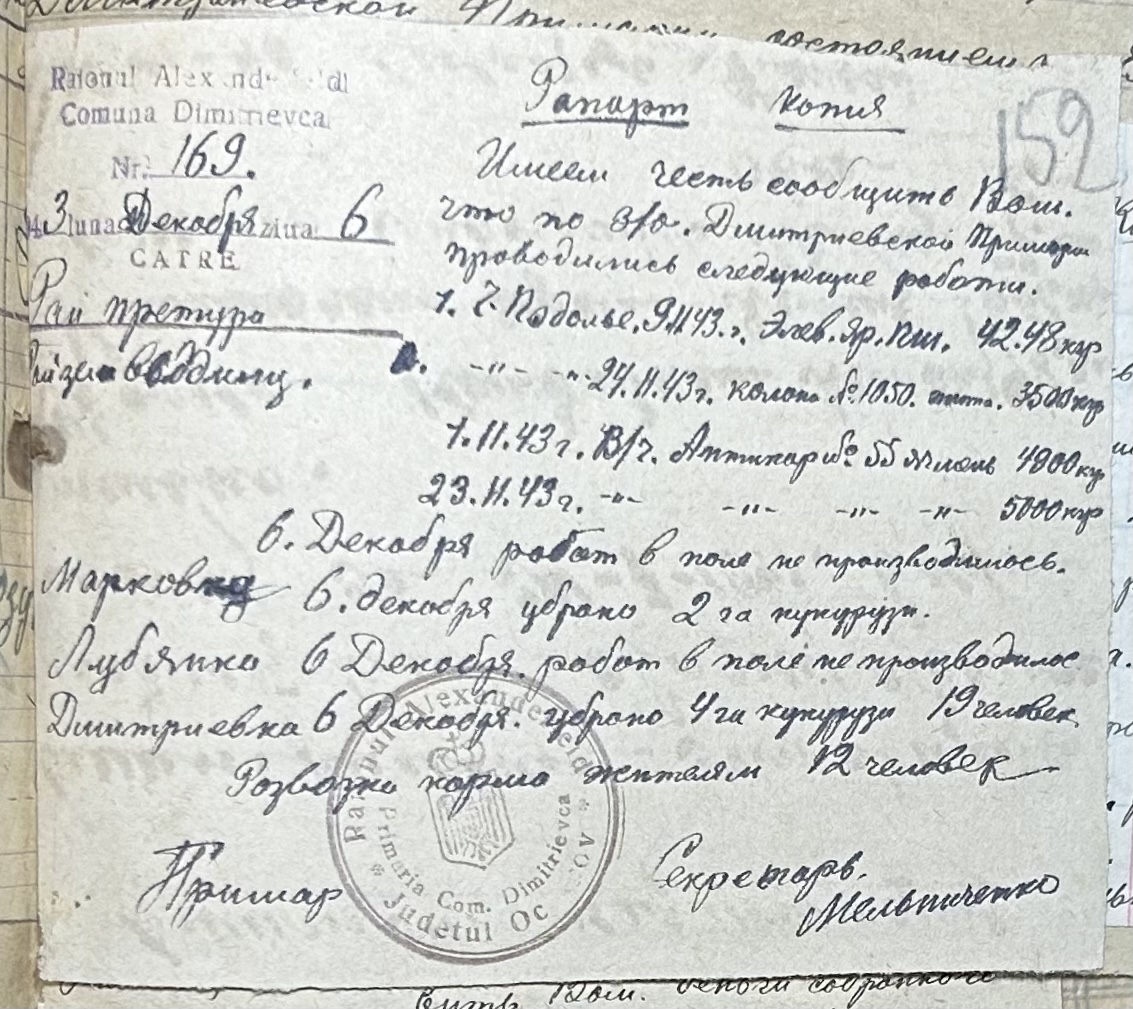 состоянием
Raionul Alexanderfeld
Comuna Dimitrievca
Nr. 169.
43 luna Декабря ziua 6
CATRE
Рай претура
Рапарт Копия
152
Имеем честь сообщить Вам.
что по з/о. Дмитриевской Примарии
проводились следующие работи.
1. 2. Подолье. 9.11.43.г. Элев. Яр. Пш. 42.48 кгр
-"- -"- 24.11.43г. колона № 1050. 3500 кгр
1.11.43г. В/ч. № 55 4900 кгр
23.11.43г. -"- -"- -"- -"- 5000 кгр
6. Декабря работ в поле не производилось.
6. декабря убрано 2 га кукурузи.
Лубянка 6 Декабря. работ в поле не производилос
Дмитриевка 6 Декабря. убрано 4 га кукурузи 19 человек
Розвозка корма жителям 12 человек
Raionul Alexanderfeld
Primeria Com. Dimitrievca
Judetul Oc OV
Примар Секретарь.
Мельниченко
Вам. деньги собранного